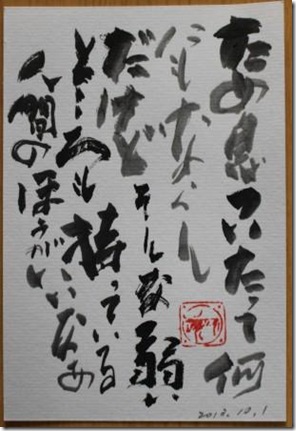 ため息ついたって何
にもな
だけどそんな弱い
ところも持っている
人間のほうがいいなあ
10.1